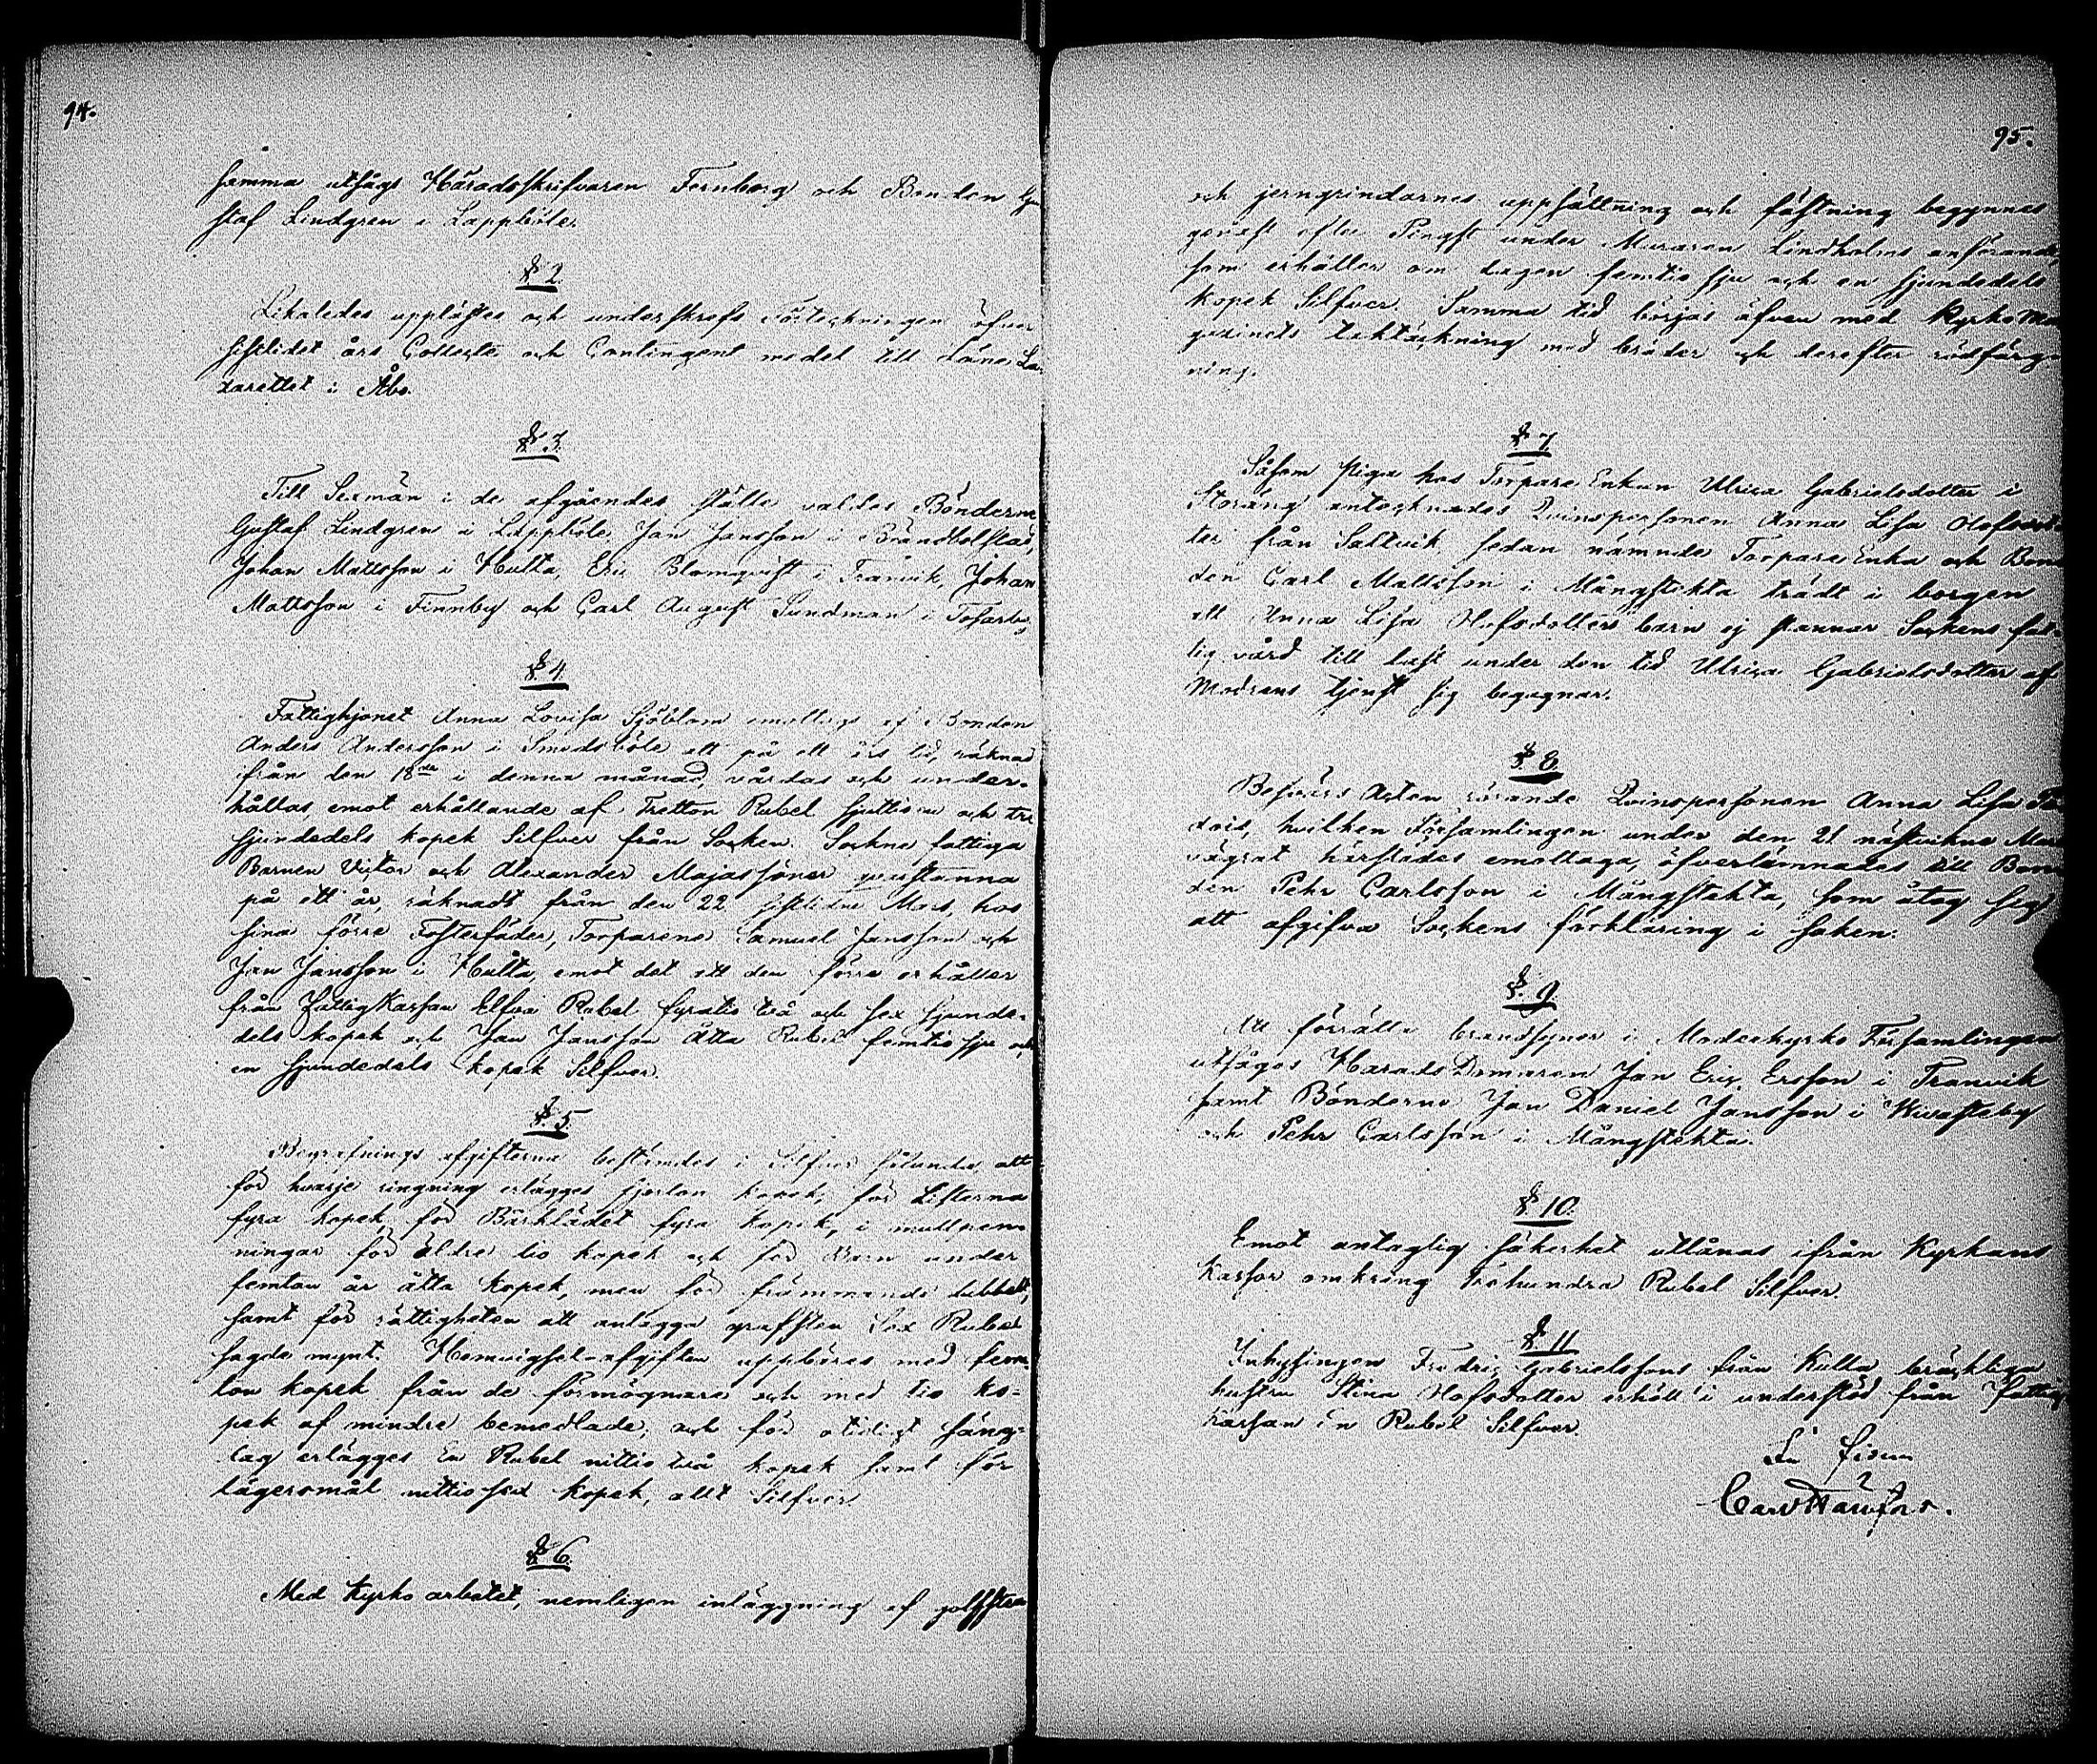 94.
samma utsågs Häradsskrifvaren Fernberg och Bonden Gu
staf Lindgren i Lappböle.
§ 2.
Likaledes upplästes och underskrefs Förteckningen öfver
sistlidet års Collecte och Contingent medel till Läns La
zarettet i Åbo.
§ 3.
Till Sexmän i de afgåendes ställe valdes Bönderne
Gustaf Lindgren i Lappböle, Jan Jansson i Brändbolstad,
Johan Mattsson i Hulta, Eric Blomqvist i Tranvik, Johan
Mattsson i Finnby och Carl August Sundman i Tosarby.
§ 4.
Fattighjonet Anna Lovisa Sjöblom emottogs af Bonden
Anders Andersson i Smedsböle att på ett års tid, räknad
ifrån den 18de i denna månad, vårdas och under-
hållas, emot erhållande af Tretton Rubel sjuttio och tre
sjundedels kopek Silfver från Socken. Sockne fattiga
Barnen Victor och Alexander Majassöner qvarstanna
på ett år, räknadt från den 22 sistlidne Mars, hos
sina förre Fosterfäder, Torparene Samuel Jansson och
Jan Jansson i Hulta, emot det att den förre erhåller
från Fattigkassan Elfva Rubel fyratio två och sex sjunde-
dels kopek och Jan Jansson Åtta Rubel femtio sju och
en sjundedels kopek Silfver.
§ 5.
Begrafnings afgifterna bestämdes i Silfver sålunda, att
för hvarje ringning erlägges fjorton kopek, för Listerna
fyra kopek, för Bårklädet fyra kopek, i mullpen-
ningar för äldre tio kopek och för Barn under
femton år åtta kopek, men för främmande dubbelt,
samt för rättigheten att anlägga grafsten Sex Rubel
sagde mynt. Hemvigsel-afgiften uppbäres med fem-
ton kopek från de förmögnare och med tio ko-
pek af mindre bemedlade, och för otidigt säng-
lag erlägges En Rubel nittio två kopek samt för
lägersmål nittio sex kopek, allt Silfver.
§ 6.
Med Kyrko arbetet, nemligen inläggning af golfsten
95.
och jerngrindarnes uppsättning och fästning begynnes
genast efter Pingst under Muraren Lindholms anförande,
som erhåller om dagen femtio sju och en sjundedels
kopek Silfver. Samma tid börjas äfven med Kyrko Ma
gazinets taktäckning med bräder och derefter rödfärg
ning.
§ 7.
Såsom Piga hos Torpare Enkan Ulrica Gabrielsdotter i
Storäng antecknades Qvinspersonen Anna Lisa Olofsdot
ter från Saltvik, sedan nämnde Torpare Enka och Bon
den Carl Mattsson i Mångstekta trädt i borgen
att Anna Lisa Olofsdotters barn ej stannar Sockens fat-
tig vård till last under den tid Ulrica Gabrielsdotter af
Modrens tjenst sig begagnar.
§ 8.
Besvärs Acten rörande Qvinspersonen Anna Lisa
hvilken Församlingen under den 21 nästvikne Mars
vägrat härstädes emottaga, öfverlämnades till Bon
den Pehr Carlsson i Mångstekta, som åtog sig
att afgifva Sockens förklaring i saken.
§ 9.
Att förrätta brandsyner i Moderkyrko Församlingen
utsågos Härads Domaren Jan Eric Ersson i Tranvik
samt Bönderne Jan Daniel Jansson i Kvasteby
och Pehr Carlsson i Mångstekta.
§ 10.
Emot antaglig säkerhet utlånas ifrån Kyrkans
kassor omkring Trehundra Rubel Silfver.
§ 11.
Inhysingen Fredric Gabrielssons från Kulla bräckliga
hustru Stina Olofsdotter erhöll i understöd från Fattig
kassan En Rubel Silfver.